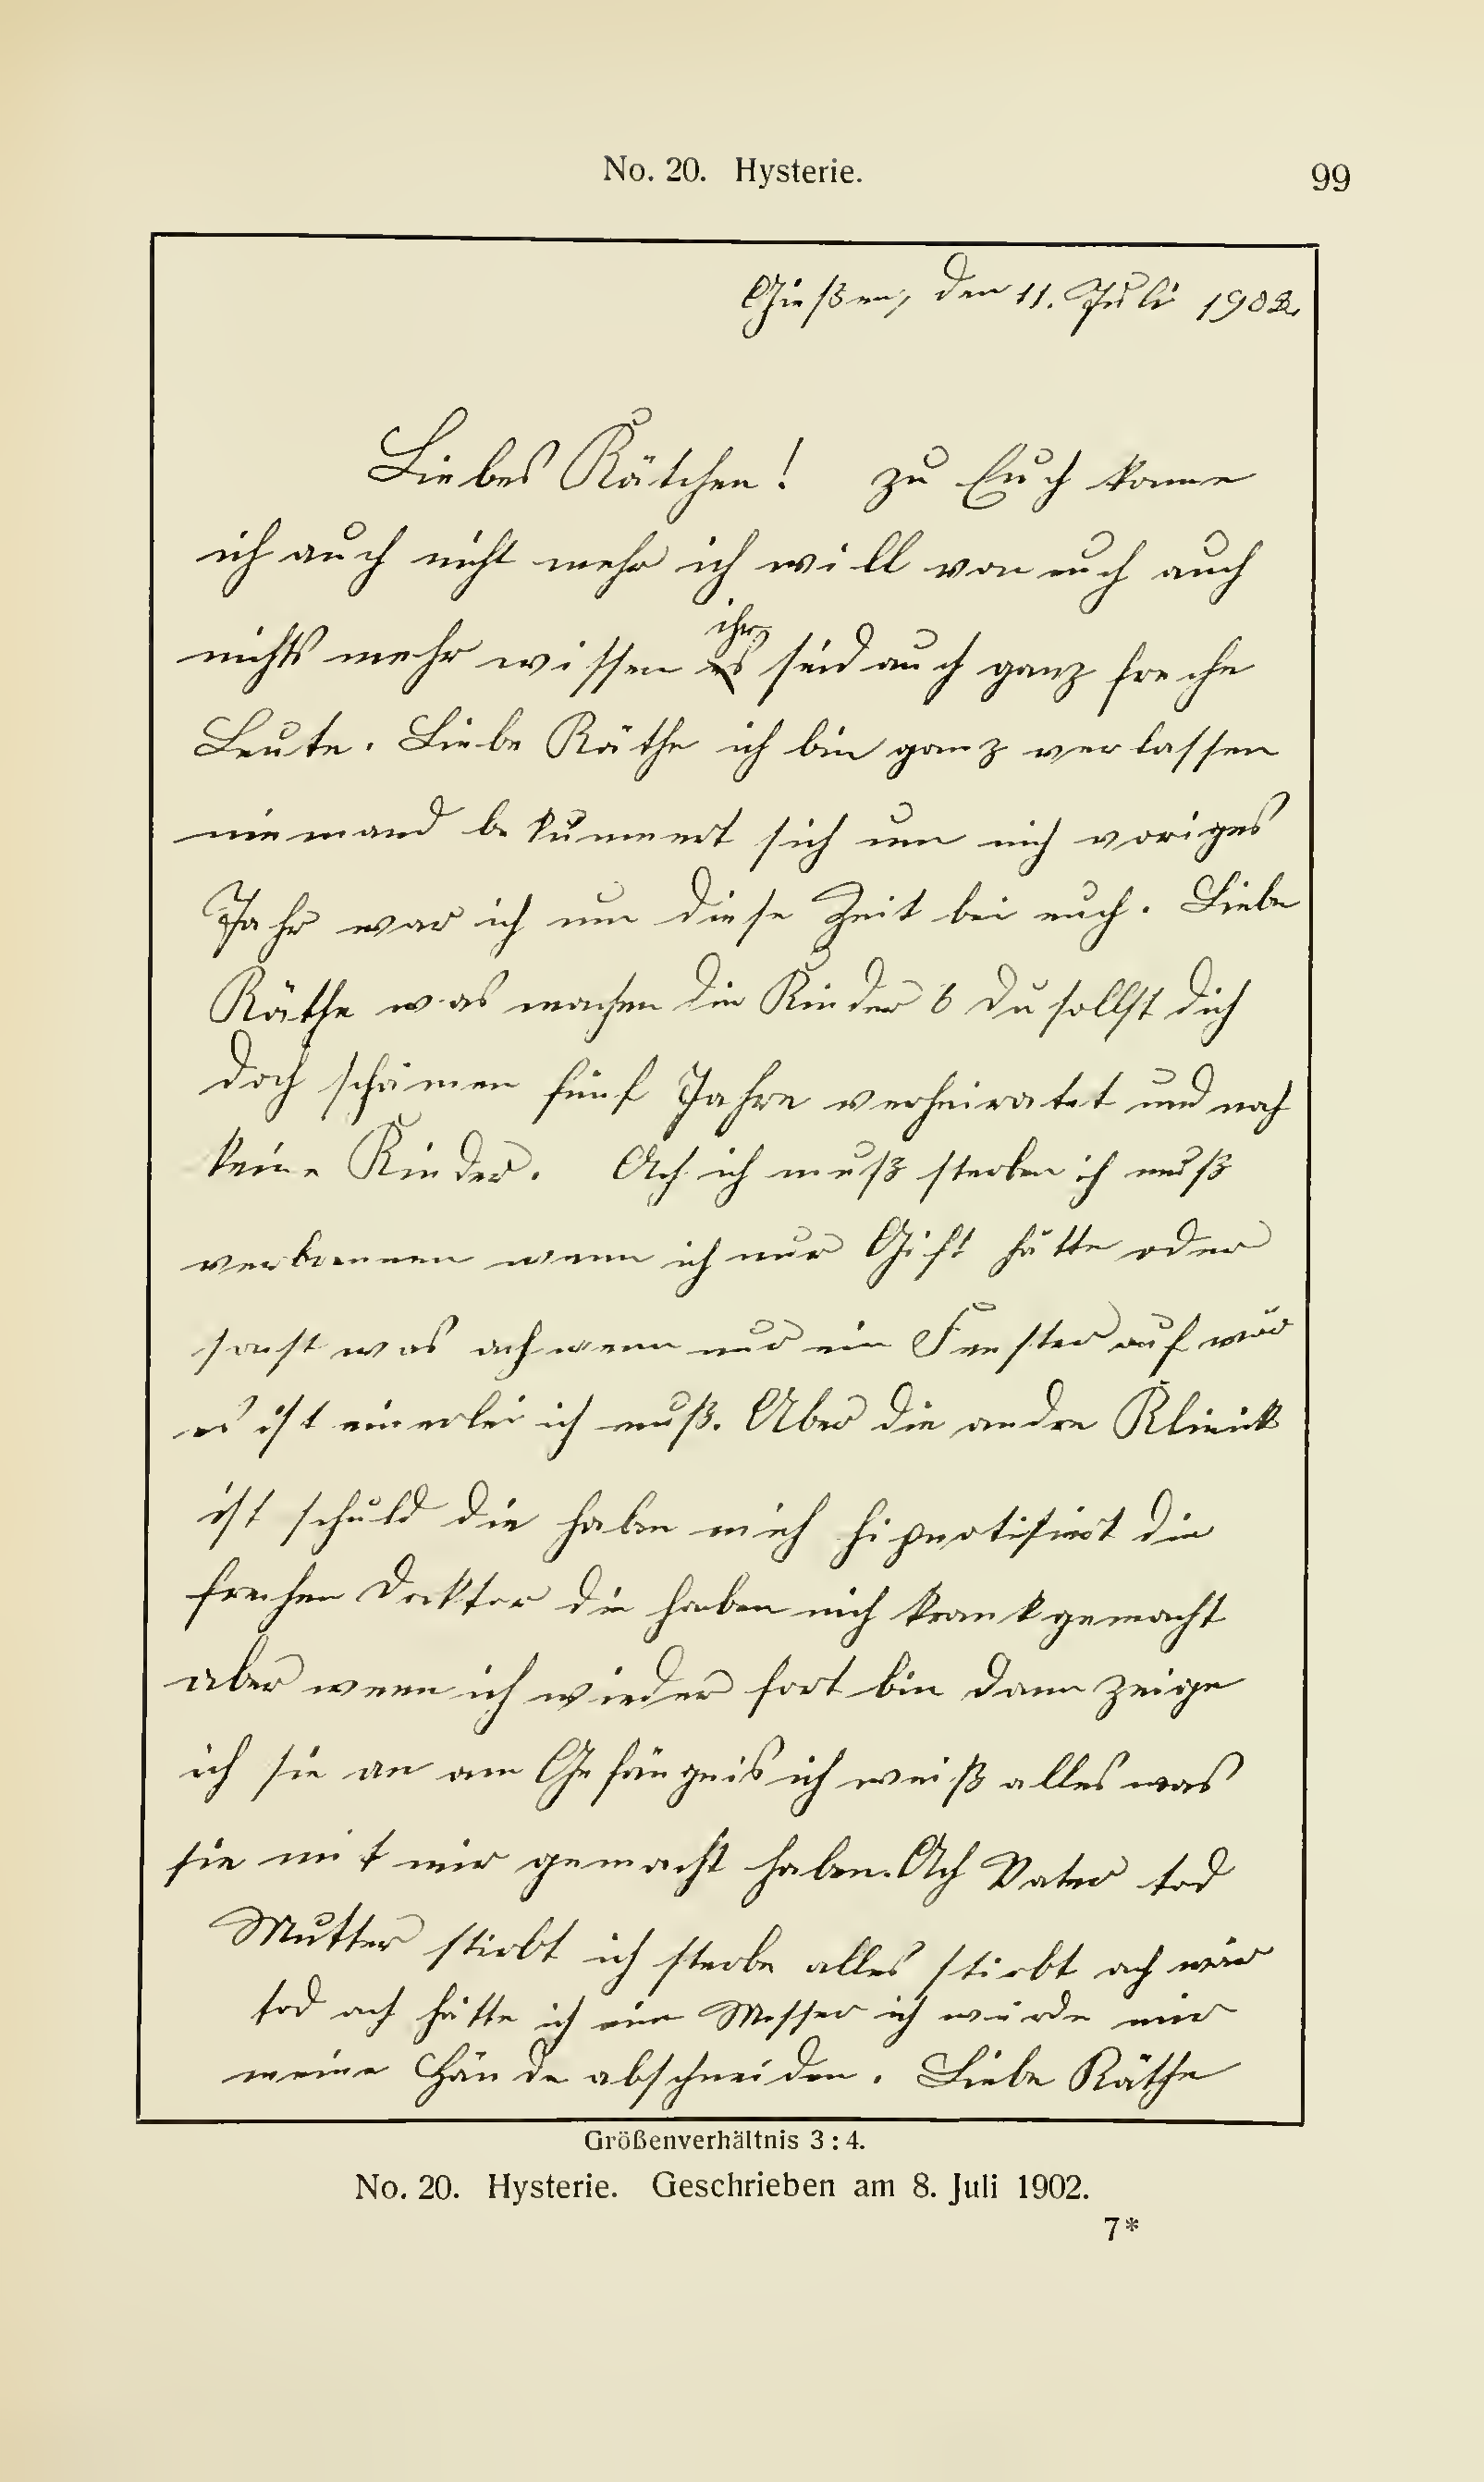 No. 20. Hysterie.
99
Gießen, den 11. Juli 1902.
Liebes Kätchen! zu Euch komme
ich auch nicht mehr ich will von euch auch
nichts mehr wissen ihr seid auch ganz freche
Leute. Liebe Käthe ich bin ganz verlassen
niemand bekümmert sich um mich voriges
Jahr war ich um diese Zeit bei euch. Liebe
Käthe was machen die Kinder 6 du sollst dich
doch schämen fünf Jahre verheiratet und noch
keine Kinder. Ach ich muß sterben ich muß
verbrennen wenn ich nur Gift hätte oder
sonst was ach wenn nur ein Fenster auf wär
es ist einerlei ich muß. Aber die andre Klinick
ist schuld die haben mich hipnotisiert die
frechen Doktor die haben mich krank gemacht
aber wenn ich wieder fort bin dann zeige
ich sie an am Gefängnis ich weiß alles was
sie mit mir gemacht haben. Ach Vater tod
Mutter stirbt ich sterbe alles stirbt ach wär
tod ach hätte ich ein Messer ich würde mir
meine Hände abschneiden. Liebe Käthe
Größenverhältnis 3 : 4.
No. 20. Hysterie. Geschrieben am 8. Juli 1902.
7*